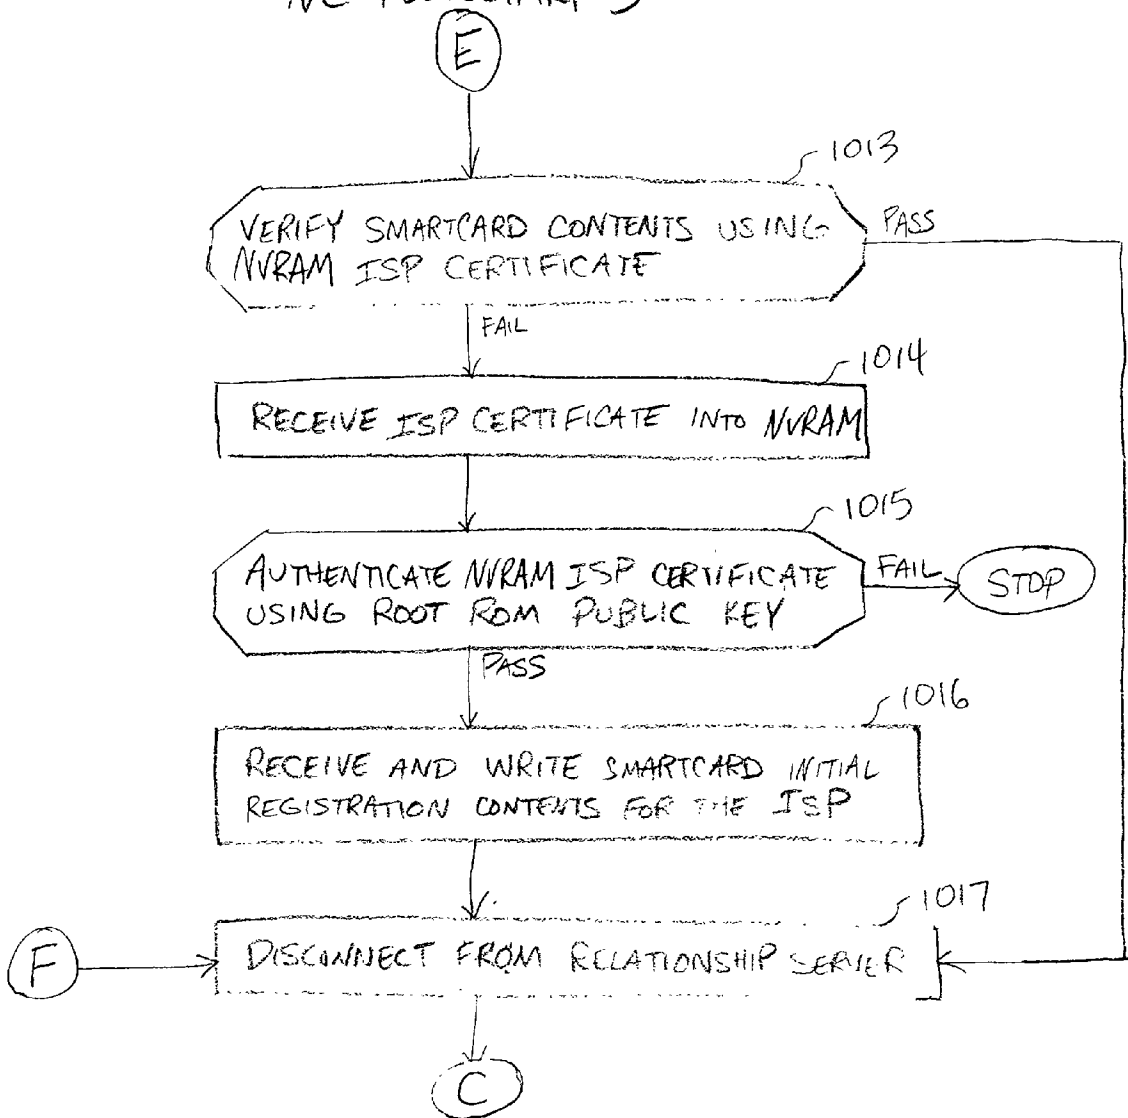 NC FLOWCHART 3
E
1013
VERIFY SMARTCARD CONTENTS USING
NVRAM ISP CERTIFICATE
PASS
FAIL
1014
RECEIVE ISP CERTIFICATE INTO NVRAM
1015
AUTHENTICATE NVRAM ISP CERTIFICATE
USING ROOT ROM PUBLIC KEY
FAIL
STOP
PASS
1016
RECEIVE AND WRITE SMARTCARD INITIAL
REGISTRATION CONTENTS FOR THE ISP
1017
F
DISCONNECT FROM RELATIONSHIP SERVER
C